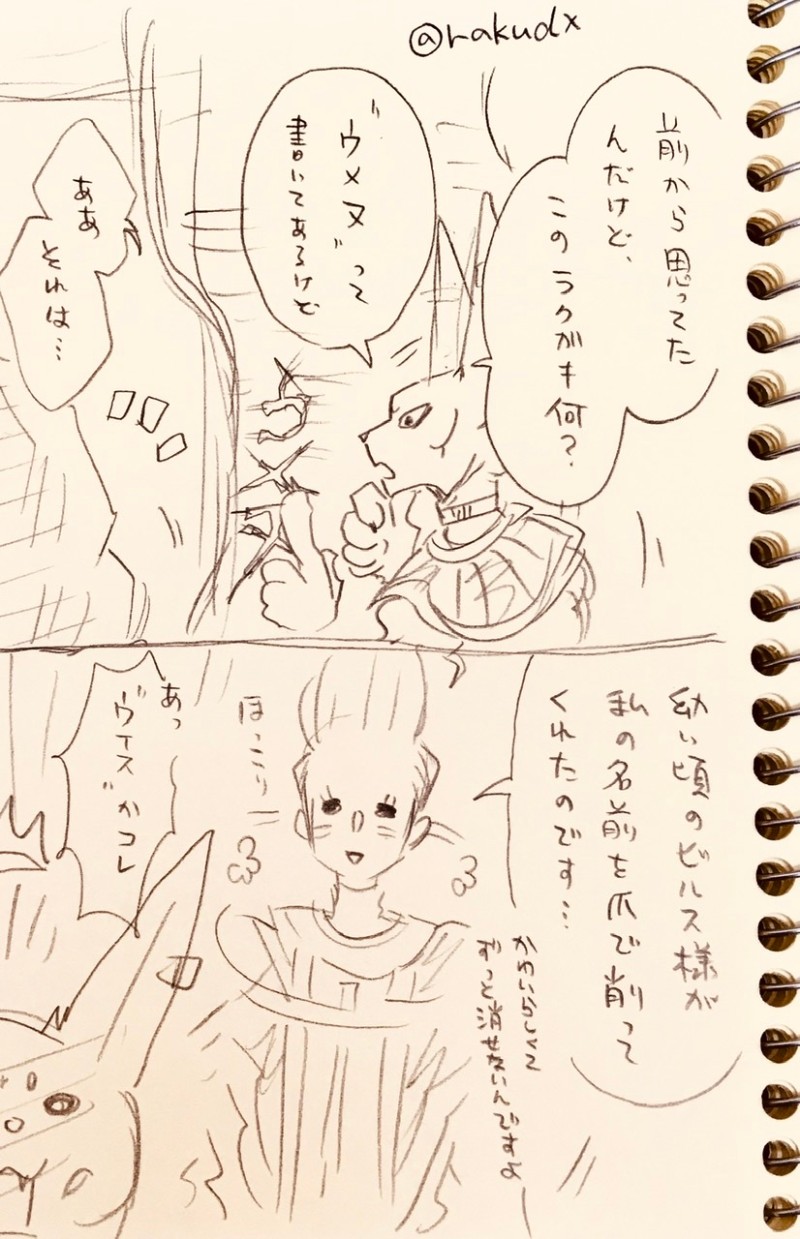 @rakudx
前から思ってた
んだけど、
このラクガキ何?
"ウメヌ"って
書いてあるけど
ウメヌ
ああ
それは…
幼い頃のビルス様が
私の名前を爪で削って
くれたのです…
かわいらしくて
ずっと消せないんですよ
ほっこり
あっ
"ヴイス"かコレ